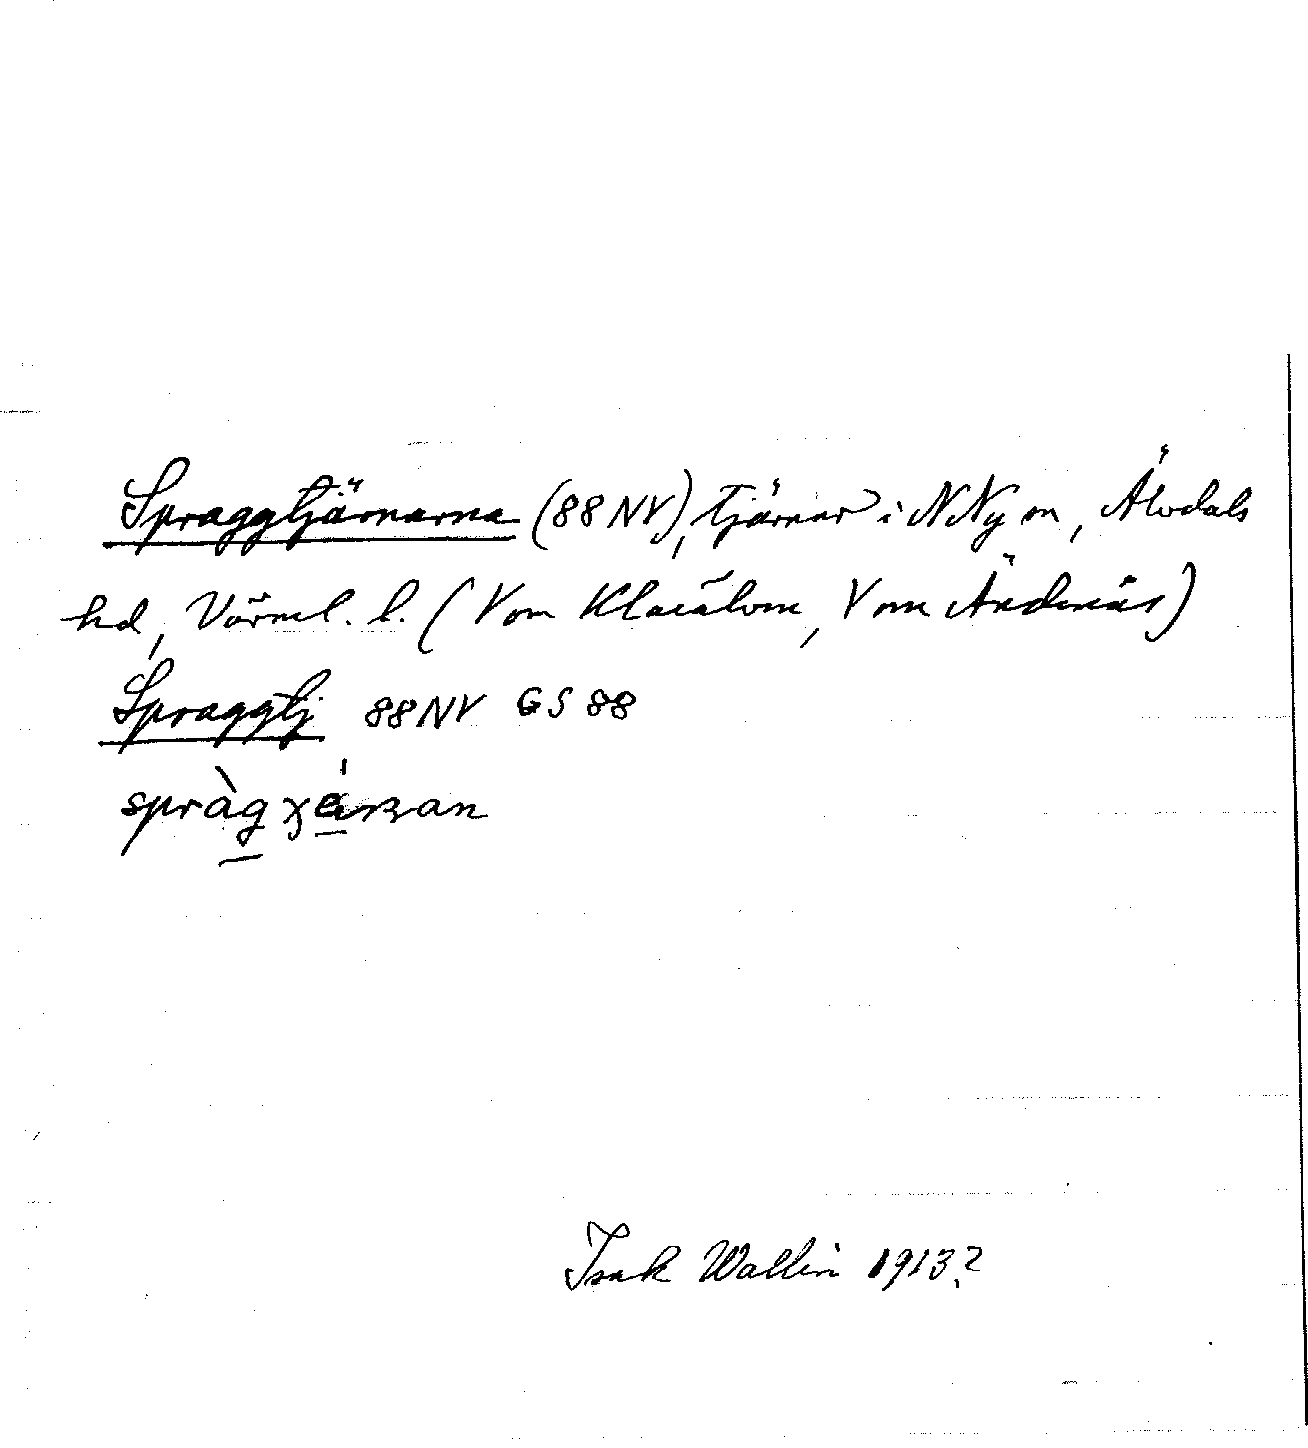 Spraggtjärnarna (88 NV), tjärnar i N Ny sn, Älvdals
hd, Värml. l. (V om Klarälven, V om
Spraggtj 88 NV GS 88
Isak Wallin 1913?